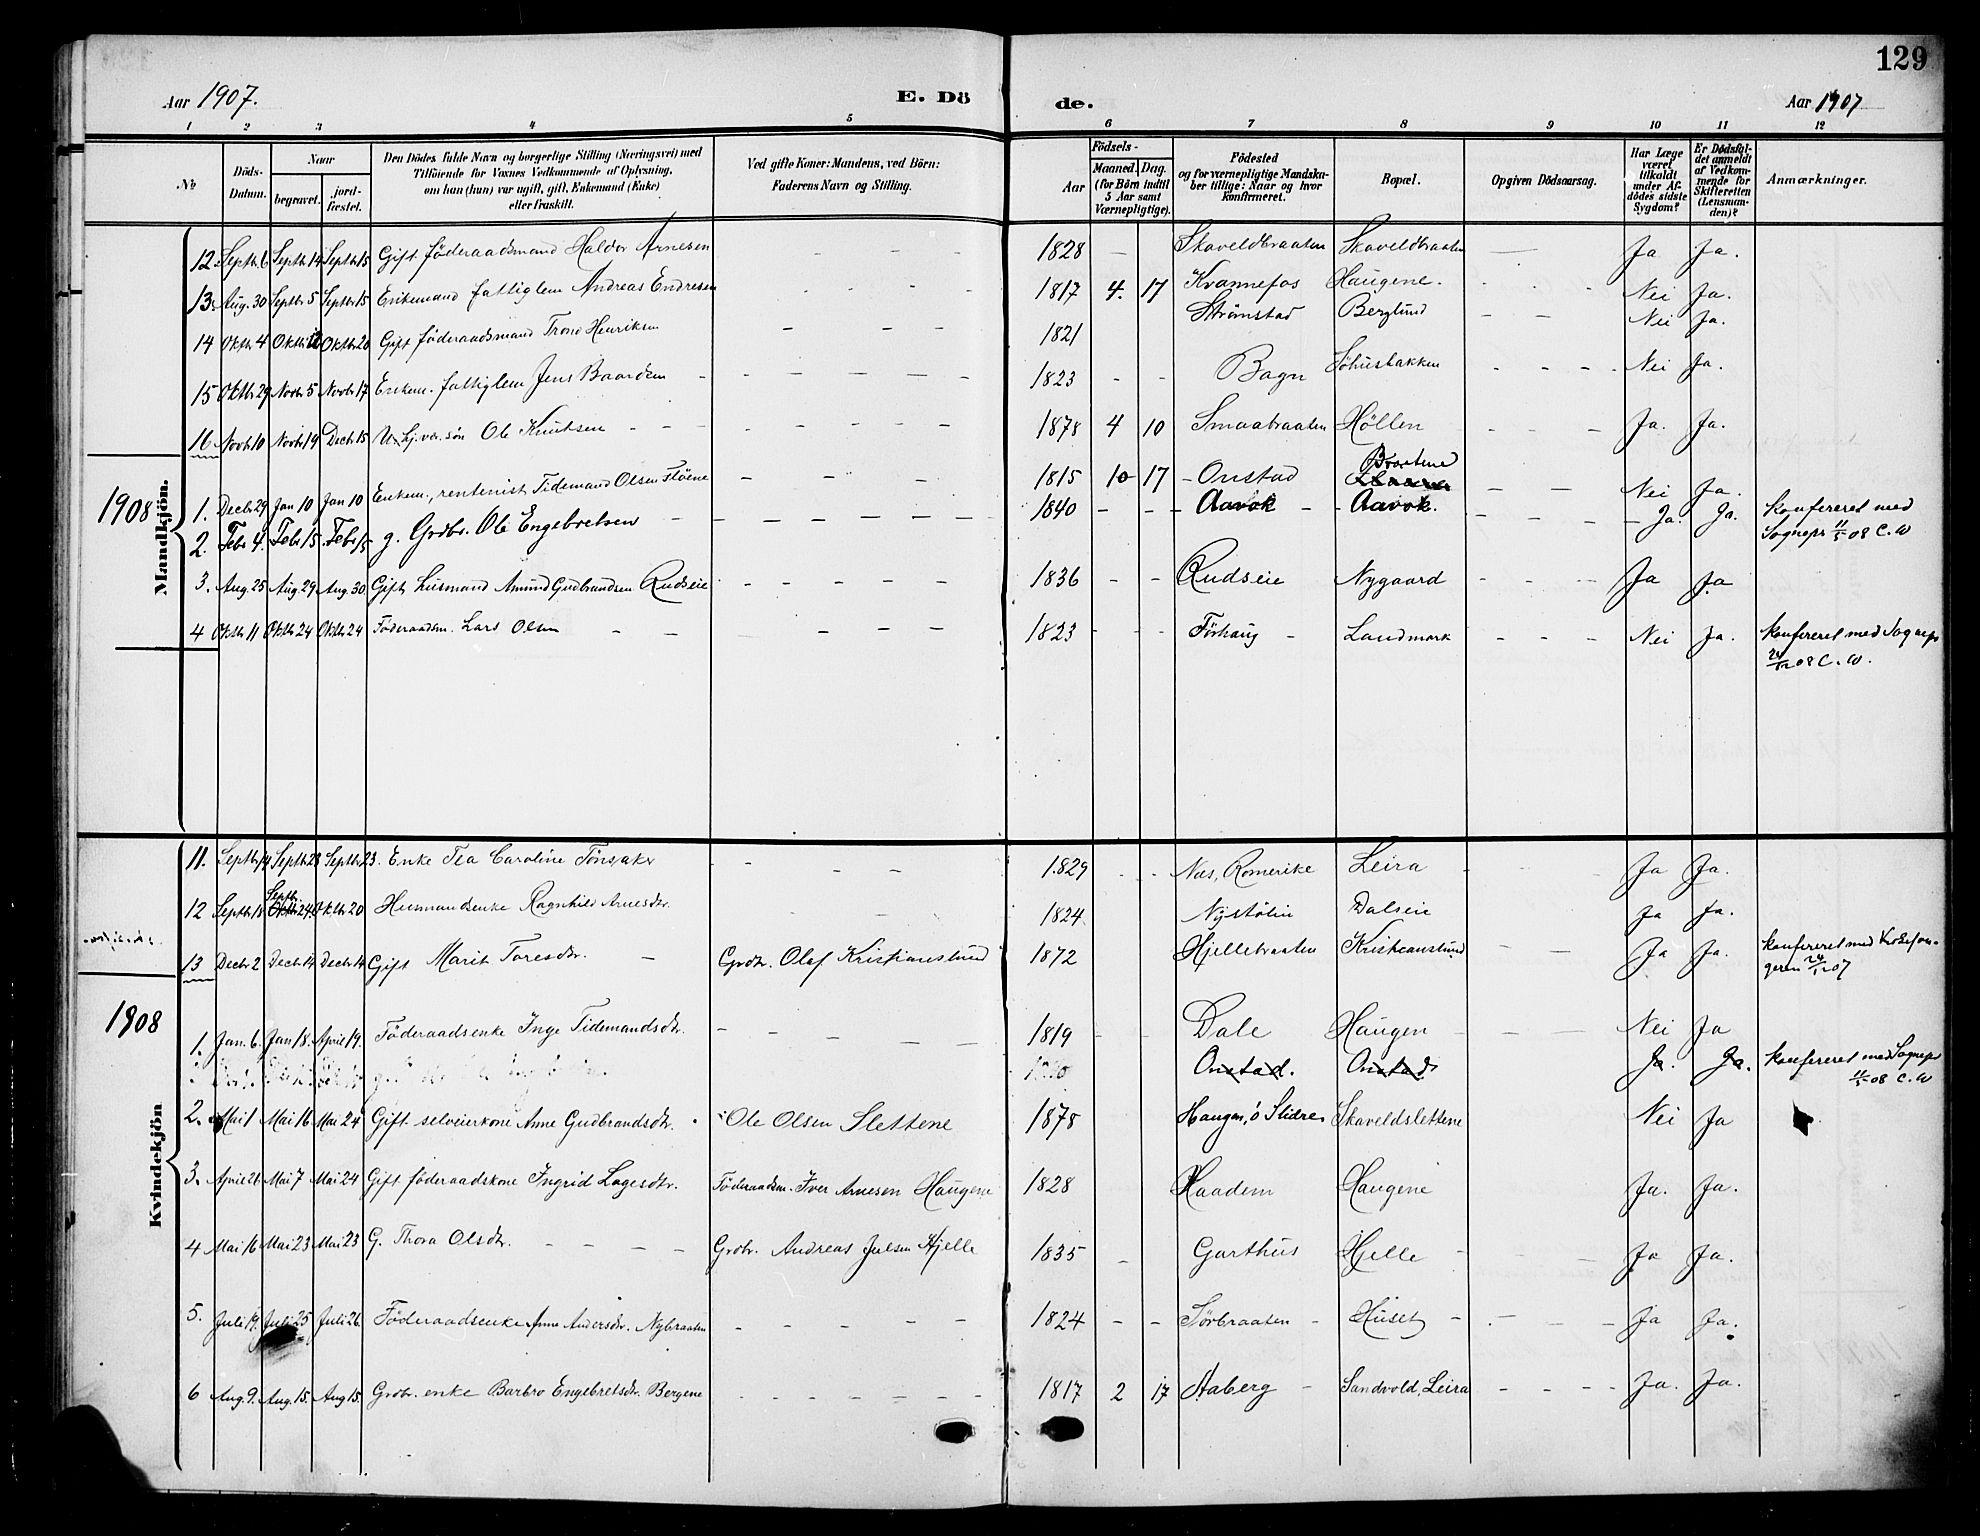 129
Aar 1907.
E. Dö
de.
Aar 1907
1 2 3 4 5 6 7 8 9 10 11 12
№
Döds-Datum.
Naar
begravet.
jord-fæstet.
Den Dödes fulde Navn og borgerlige Stilling (Næringsvei) med
Tilföiende for Voxnes Vedkommende af Oplysning,
om han (hun) var ugift, gift, Enkemand (Enke)
eller fraskilt.
Ved gifte Koner: Mandens, ved Börn:
Faderens Navn og Stilling.
Födsels-
Aar
Maaned. Dag.
(for Börn indtil
5 Aar samt
Værnepligtige).
Födested
og for værnepligtige Mandska-
ber tillige: Naar og hvor
konfirmeret.
Bopæl.
Opgiven Dödsaarsag.
Har Læge
været
tilkaldt
under Af-
dödes sidste
Sygdom?
Er Dödsfal-
det anmeldt
af Vedkom-
mende for
Skifteretten
(Lensman-
den)?
Anmærkninger.
Mandkjön.
12. Septbr 6 Septbr 14 Septbr 15 Gift föderaadsmand Haldor Arnesen - - - 1828 - Skaveldbraaten Skaveldbraaten — Ja Ja.
13. Aug. 30 Septbr 5 Septbr 15 Enkemand fattiglem Andreas Endresen - - - 1817 4. 17 Kvannefos Haugene. - - - Nei Ja.
14 Oktbr 4 Oktbr 12 Oktbr 20 Gift föderaadsmand Trond Henriksen - - - 1821 Strömstad Berglund - - Nei Ja.
15 Oktbr 29 Novbr 5 Novbr 17 Enkem. fattiglem Jens Baardsen - - - 1823 - - Bagn - - - Nei Ja.
16 Novbr 10 Novbr 19 Decbr 15 Ole Knutsen - - - 1878 4 10 Smaabraaten Höllen - - - Ja. Ja.
1908
1. Decbr 29 Jan 10 Jan 10 Enkem., rentenist Tidemand Olsen Flöene - - - 1815 10 17 - Onstad Braatene - - Nei Ja.
2. Febr 4. Febr 15 Febr 15 g. Grdbr. Ole Engebretsen - - - 1840 - - - Aavok - Aavok. - - - Ja. Ja. Konfereret med
Sognepr 11/5 08 C. W
3. Aug. 25 Aug 29 Aug. 30 Gift husmand Amund Gudbrandsen Rudseie - - - 1836 - - Rudseie Nygaard - - - Ja Ja
4 Oktbr 11 Oktbr 24 Oktbr 24 Föderaadsm. Lars Olsen - - - 1823 - - - Förhaug - Landmark - - - Nei Ja. Konfereret med Sognepr
24/12 08 C. W.
Kvindekjön
11. Septbr 14 Septbr 23 Septbr 23. Enke Tea Caroline Tönsaker - - - 1829 - - Næs, Romerike Leira - - Ja Ja.
12 Septbr 18 Septbr 24 Oktbr 20 Husmandsenke Ragnhild Arnesdtr. - - 1824 Nystölen Dalseie Ja Ja.
13 Decbr 2 Decbr 14 Decbr 14 Gift Marit Toresdtr. - Grdbr. Olaf Kristianslund 1872 Hjellebraaten Kristianslund - - Ja Ja. Konfereret med Kirkesan-
geren 24/12 07
1908
1. Jan. 6. Jan 18. April 19. Föderaadsenke Inge Tidemandsdtr. - - - 1819 - - Dale Haugen - - - Nei Ja
Onstad. Onstad Ja. Ja. Konfereret med Sognepr
11/5 08 C. W
2. Mai 1 Mai 16 Mai 24 Gift selveierkone Anne Gudbrandsdtr. Ole Olsen Slettene 1878 Haugen, ö Slidre Skaveldslettene Nei Ja
3. April 26 Mai 7 Mai 24 Gift föderaadskone Ingrid Lagesdtr. Föderaadsm. Iver Arnesen Haugene 1828 Haadem Haugene Ja. Ja.
4 Mai 16 Mai 23 Mai 23 G. Thora Olsdtr. - - - - Grdbr. Andreas Julsen Hjelle 1835 - Garthus Hjelle - Ja Ja.
5. Juli 19. Juli 25 Juli 26. Föderaadsenke Anne Andersdtr. Nybraaten - - - 1824 - - Sörbraaten - Huset - - - Ja Ja.
6 Aug. 9. Aug. 15. Aug 15. Grdbr. enke Barbro Engebretsdtr. Bergene - - - 1817 2 17 Aaberg - Sandvold, Leira - - - Ja. Ja.